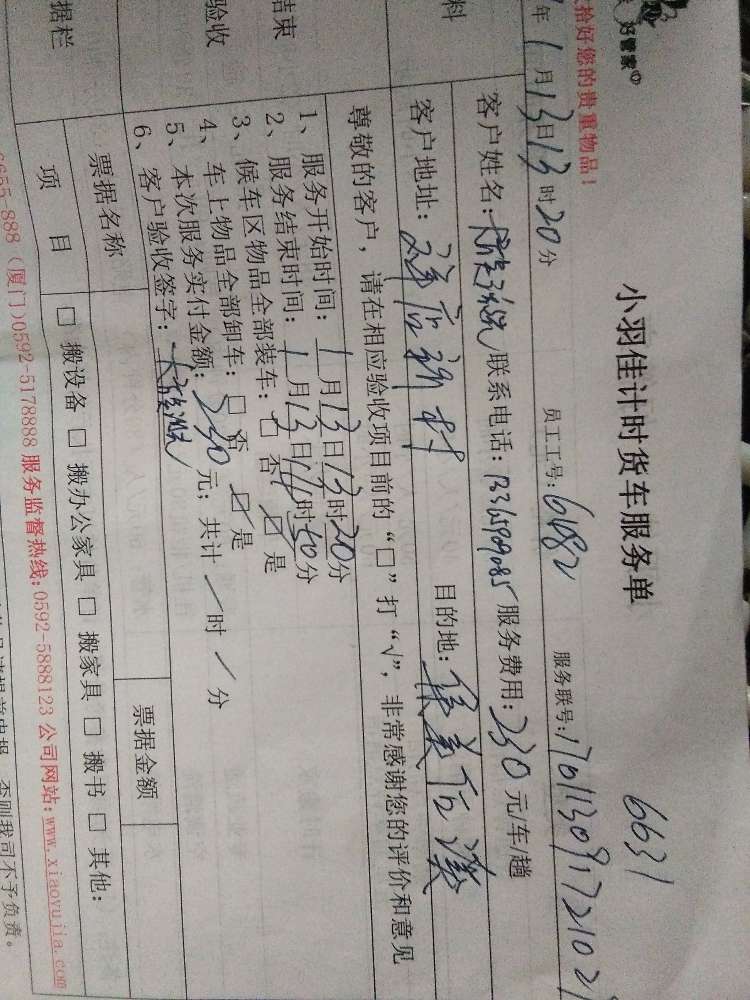 好管家
小羽佳计时货车服务单
6631
拾好您的贵重物品！
年1月13日13时20分 员工工号：6482 服务联号：170113091721021
料
客户姓名： 联系电话：13365909085 服务费用：230元/车/趟
客户地址： 后新村 目的地：集美后溪
尊敬的客户，请在相应验收项目前的“□”打“√”，非常感谢您的评价和意见
结束
验收
1、服务开始时间：1月13日13时20分
2、服务结束时间：1月13日 时40分
3、候车区物品全部装车：□否 ☑是
4、车上物品全部卸车：□否 ☑是
5、本次服务实付金额：230元；共计/时/分
6、客户验收签字：
据栏
票据名称 票据金额
项目 □搬设备 □搬办公家具 □搬家具 □搬书 □其他：
6655-888（厦门）0592-5178888 服务监督热线：0592-5888123 公司网站：www.xiaoyujia.com
否则我司不予负责。